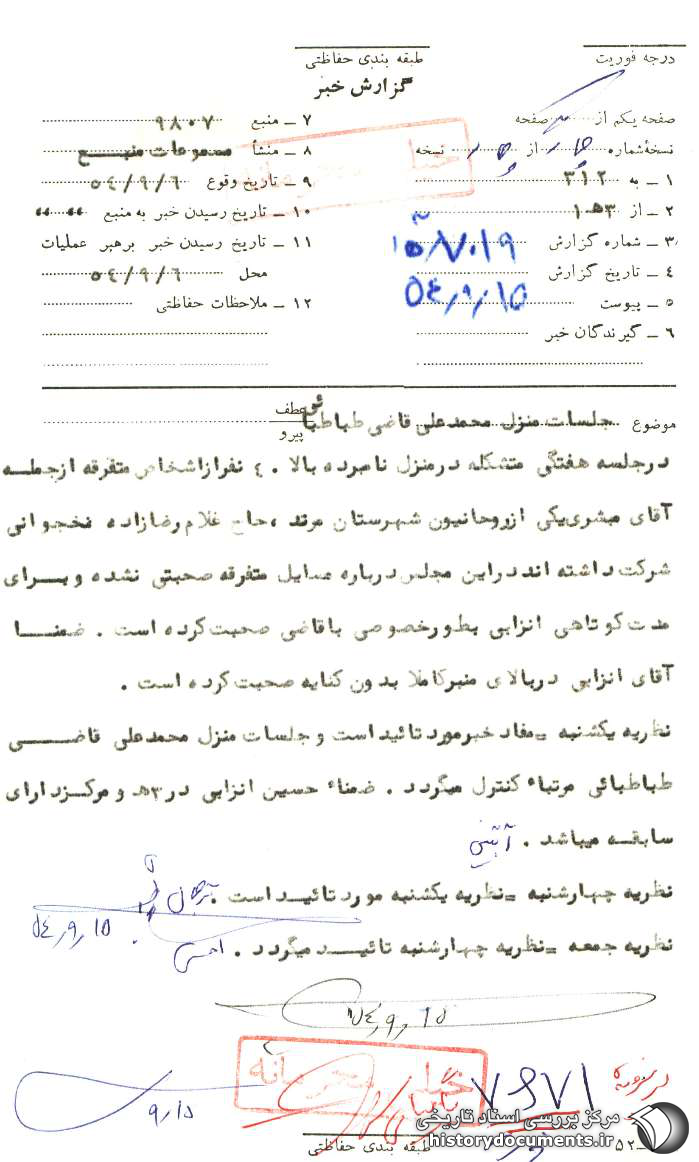 درجه فوریت
طبقه بندی حفاظتی
گزارش خبر
صفحه یکم از صفحه
نسخهٔ شماره از نسخه
۱ ــ به ۳۱۲
۲ ــ از ۳ﻫ۱
۳ ــ شماره گزارش ۱۵۸۷۰۱۹
۴ ــ تاریخ گزارش
۵ ــ پیوست ۵۴/۹/۱۵
۶ ــ گیرندگان خبر
۷ ــ منبع ۹۸۰۷
۸ ــ منشأ مسموعات منبع
۹ ــ تاریخ وقوع ۵۴/۹/۶
۱۰ ــ تاریخ رسیدن خبر به منبع ״ ״
۱۱ ــ تاریخ رسیدن خبر برهبر عملیات
محل ۵۴/۹/۶
۱۲ ــ ملاحظات حفاظتی
موضوع جلسات منزل محمدعلی قاضی طباطبائی
عطف
پیرو
درجلسه هفتگی متشکله درمنزل نامبرده بالا ۴۰ نفرازاشخاص متفرقه ازجمله
آقای مبشری یکی ازروحانیون شهرستان مرند ، حاج غلام رضازاده نخجوانی
شرکت داشته اند دراین مجلس درباره مسایل متفرقه صحبتی نشده و برای
مدت کوتاهی انزابی بطورخصوصی باقاضی صحبت کرده است . ضمنا
آقای انزابی دربالای منبر کاملا بدون کنایه صحبت کرده است .
نظریه یکشنبه ــ مفاد خبرمورد تائید است و جلسات منزل محمدعلی قاضی
طباطبائی مرتباء کنترل میگردد . ضمناء حسین انزابی در ۳ﻫ و مرکز دارای
سابقه میباشد .
نظریه چهارشنبه ــ نظریه یکشنبه مورد تائید است .
۵۴/۹/۱۵
نظریه جمعه ــ نظریه چهارشنبه تائید میگردد .
۵۴/۹/۱۵
خیلی محرمانه
۹/۱۵
۷۶۷۱
طبقه بندی حفاظتی
۵۲
مرکز بررسی اسناد تاریخی
historydocuments.ir